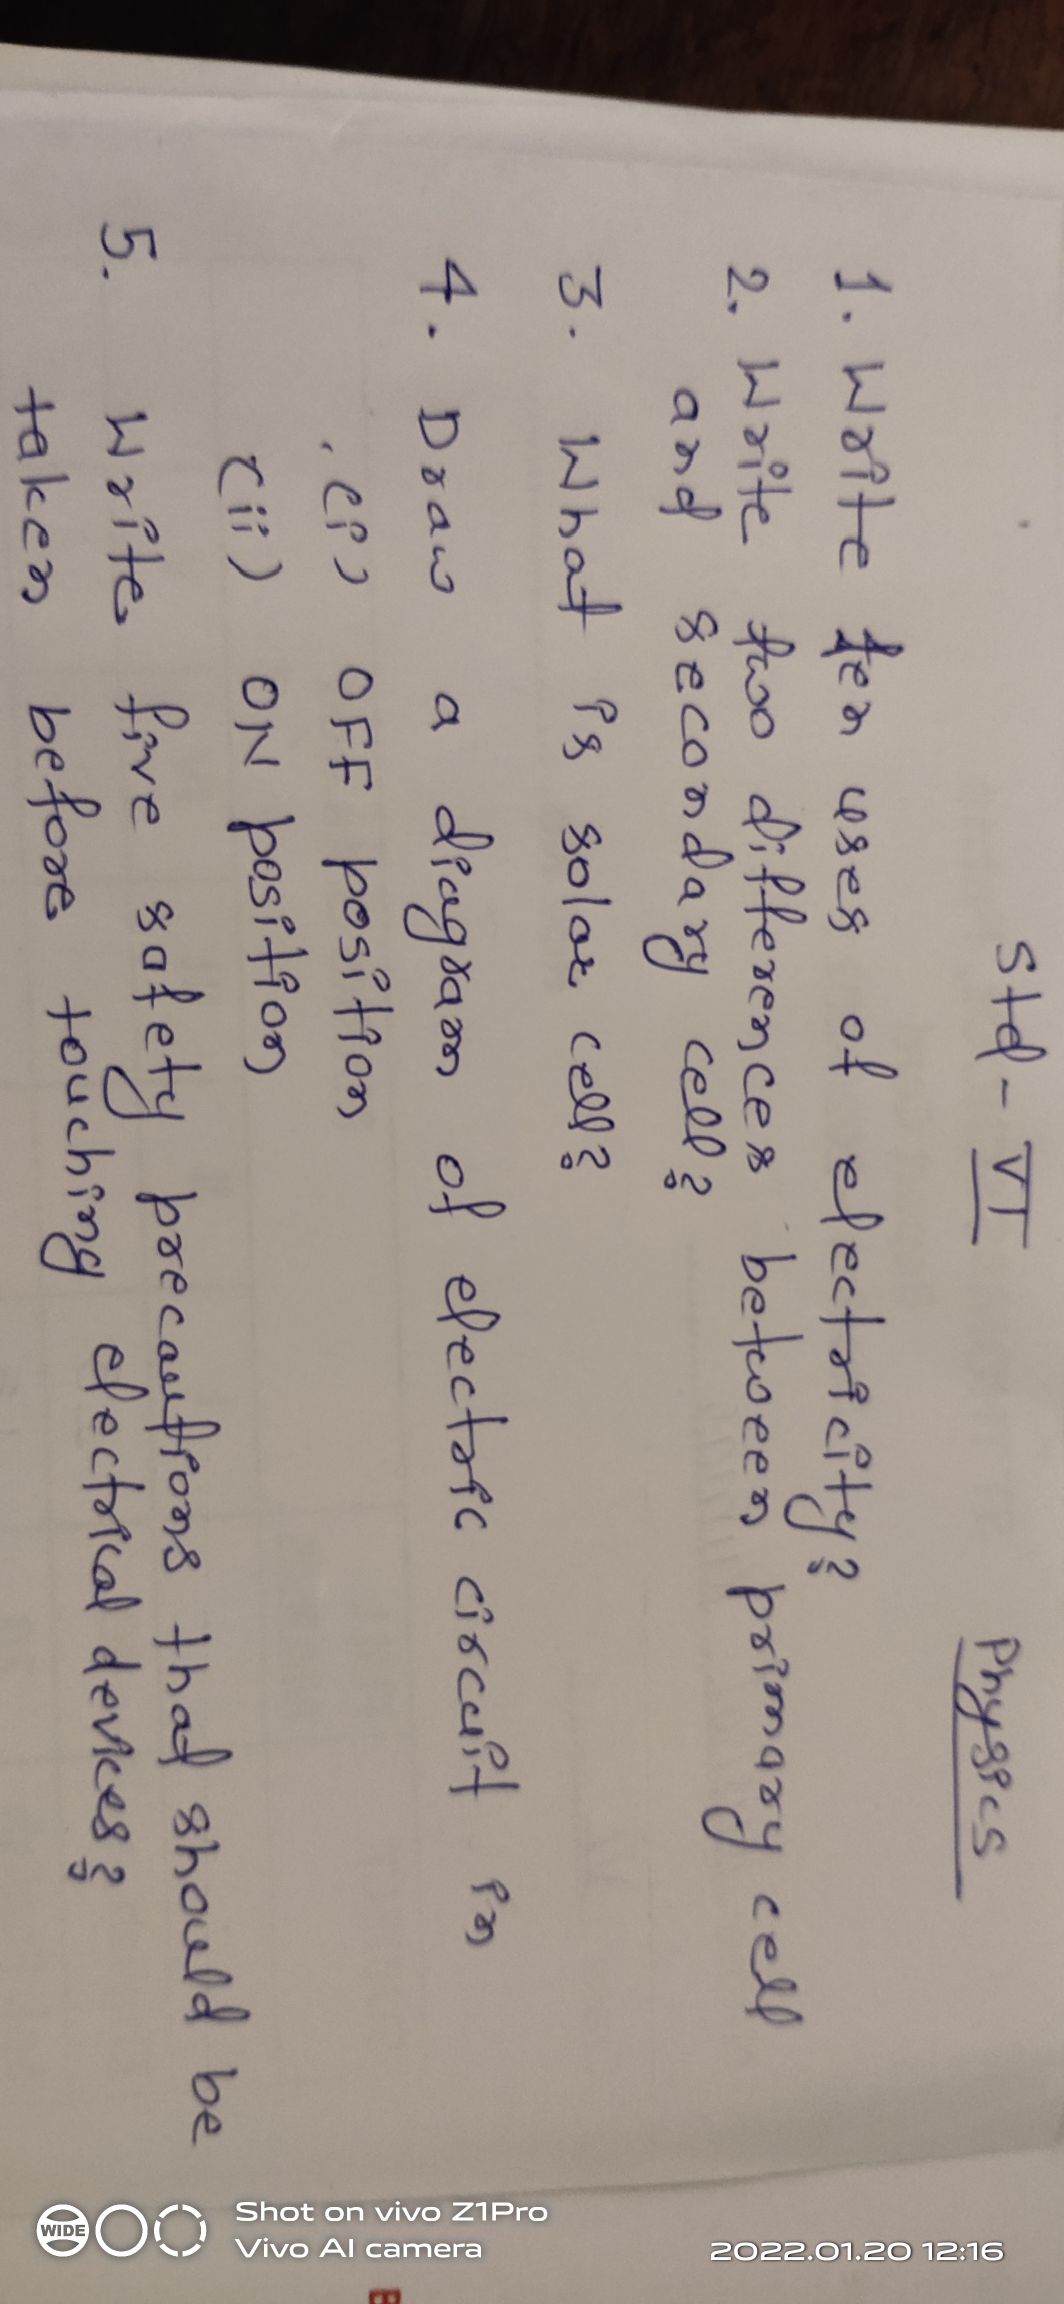 Std - VI Physics
1. Write ten uses of electricity?
2. Write two differences between primary cell
and secondary cell?
3. What is solar cell?
4. Draw a diagram of electric circuit in
(i) OFF position
(ii) ON position
5. Write five safety precautions that should be
taken before touching electrical devices?
WIDE
Shot on vivo Z1Pro
Vivo AI camera
2022.01.20 12:16